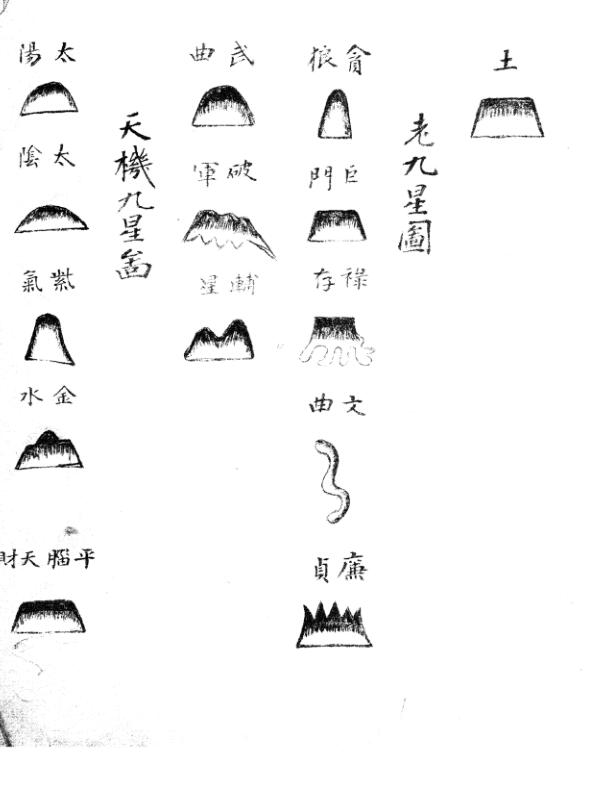 土
老九星圖
貪狼
巨門
祿存
文曲
廉貞
武曲
破軍
輔星
天機九星啚
太陽
太陰
紫氣
金水
平腦天財